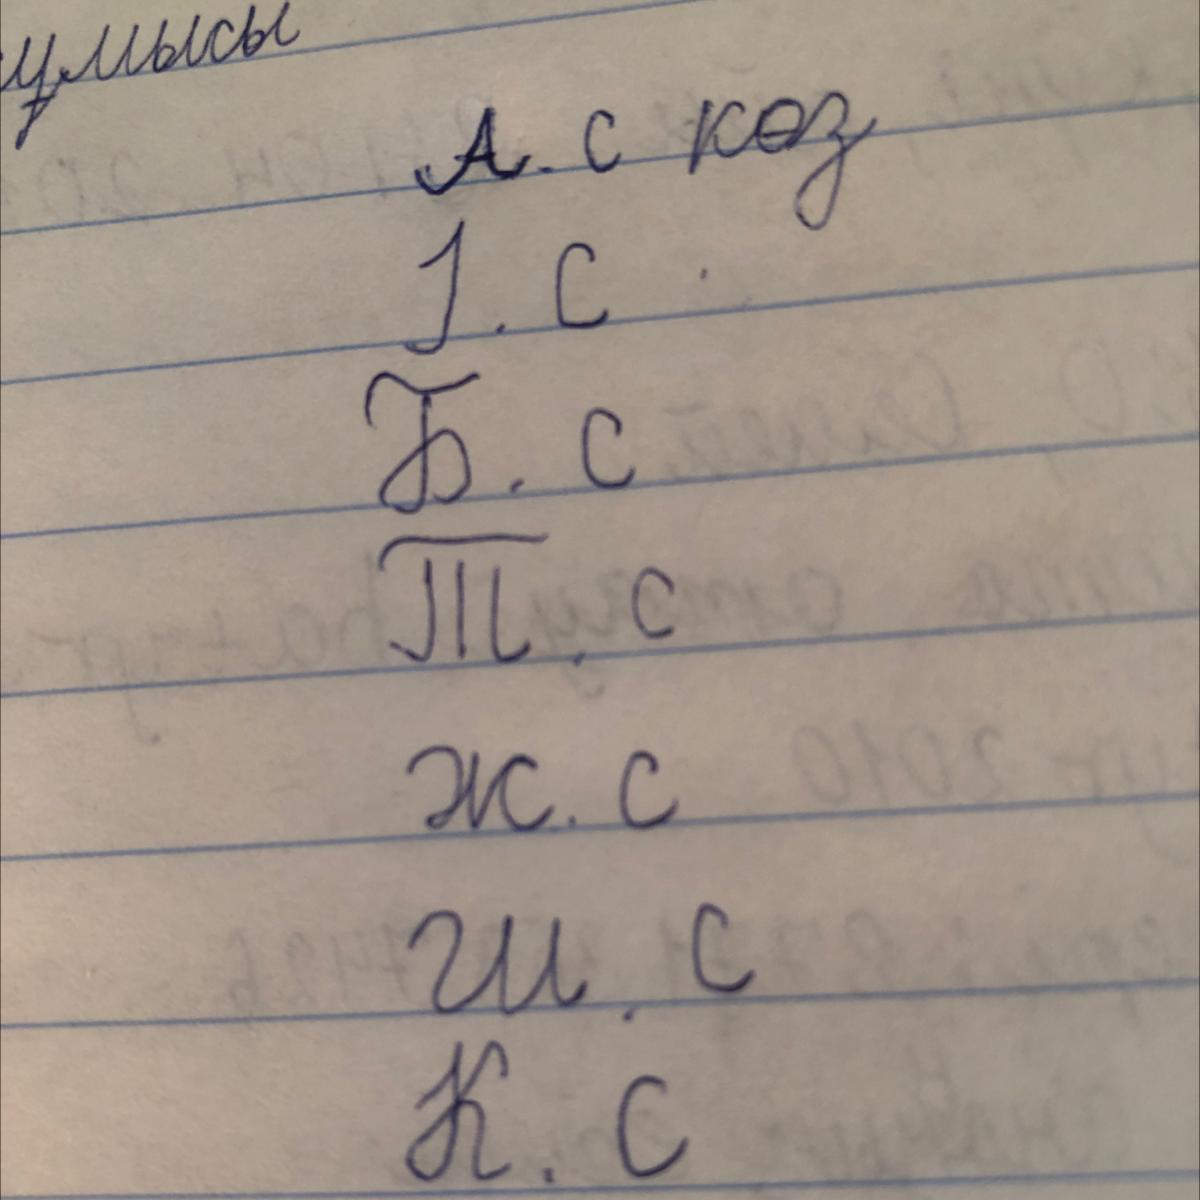 ұмысы
А. с көз
І. с
Б. с
Т. с
Ж. с
Ш. с
К. с